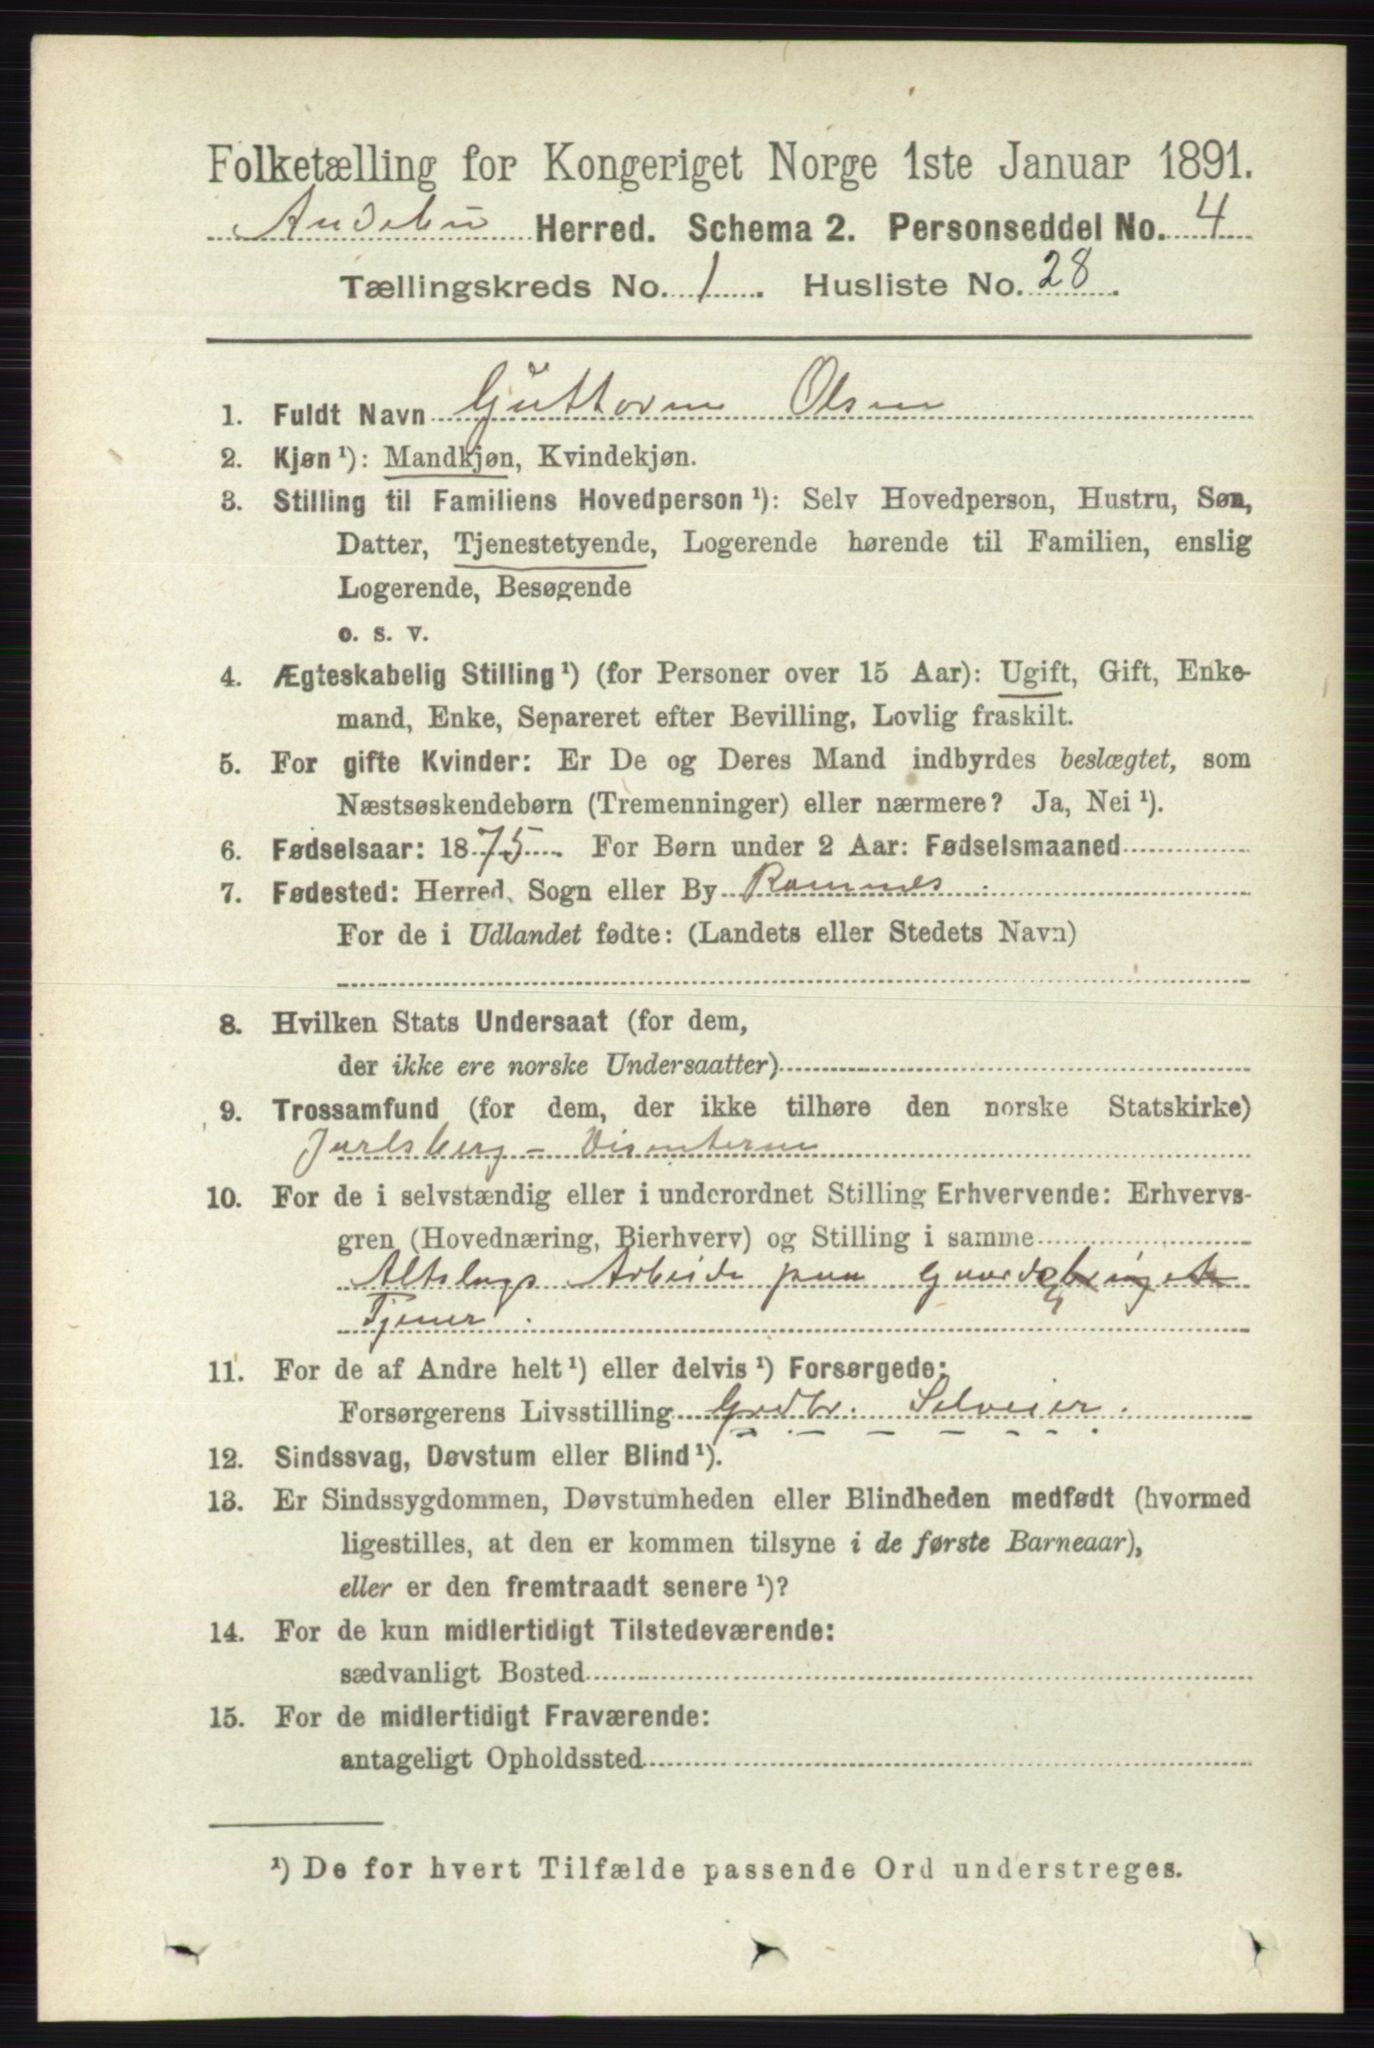 Folketælling for Kongeriget Norge 1ste Januar 1891.
Andebu Herred. Schema 2. Personseddel No. 4
Tællingskreds No. 1. Husliste No. 28.
1. Fuldt Navn Guttorm Olsen
2. Kjøn ¹): Mandkjøn, Kvindekjøn.
3. Stilling til Familiens Hovedperson ¹): Selv Hovedperson, Hustru, Søn,
Datter, Tjenestetyende, Logerende hørende til Familien, enslig
Logerende, Besøgende
o. s. v.
4. Ægteskabelig Stilling ¹) (for Personer over 15 Aar): Ugift, Gift, Enke-
mand, Enke, Separeret efter Bevilling, Lovlig fraskilt.
5. For gifte Kvinder: Er De og Deres Mand indbyrdes beslægtet, som
Næstsøskendebørn (Tremenninger) eller nærmere? Ja, Nei ¹).
6. Fødselsaar: 1875. For Børn under 2 Aar: Fødselsmaaned
7. Fødested: Herred, Sogn eller By Ramnes.
For de i Udlandet fødte: (Landets eller Stedets Navn)
8. Hvilken Stats Undersaat (for dem,
der ikke ere norske Undersaatter)
9. Trossamfund (for dem, der ikke tilhøre den norske Statskirke)
Jarlsberg-Disenterne
10. For de i selvstændig eller i underordnet Stilling Erhvervende: Erhvervs-
gren (Hovednæring, Bierhverv) og Stilling i samme
Altslags Arbeide paa Gaarde
Tjener.
11. For de af Andre helt ¹) eller delvis ¹) Forsørgede:
Forsørgerens Livsstilling Grdbr. Selveier.
12. Sindssvag, Døvstum eller Blind ¹).
13. Er Sindssygdommen, Døvstumheden eller Blindheden medfødt (hvormed
ligestilles, at den er kommen tilsyne i de første Barneaar),
eller er den fremtraadt senere ¹)?
14. For de kun midlertidigt Tilstedeværende:
sædvanligt Bosted
15. For de midlertidigt Fraværende:
antageligt Opholdssted
¹) De for hvert Tilfælde passende Ord understreges.